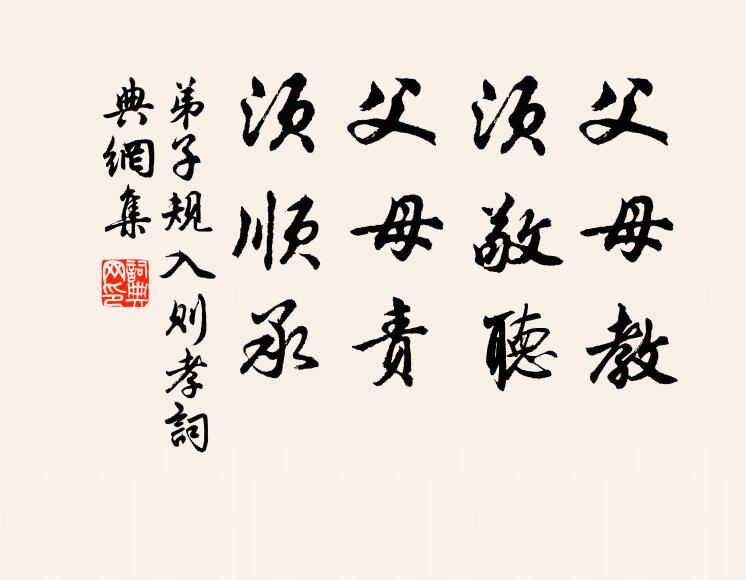 父母教
須敬聽
父母責
須順承
弟子規入則孝詞
典網集
詞典网印